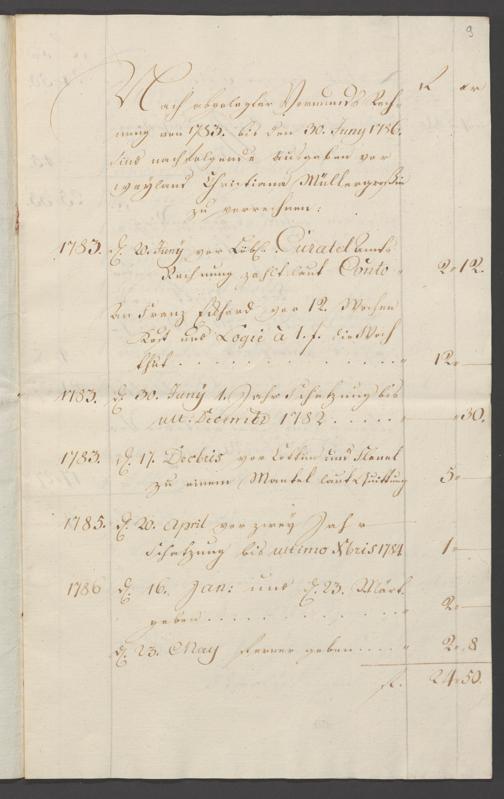 9
fl. xr
Nach abgelegter Vormunds Rech-
nung von 1783. bis den 30. Juny 1786.
sind nachfolgende Ausgaben vor
weyland Christiana Müllergroßin
zu verrechnen:
1783. d. 20. Juny vor Löbl. Curatel amts
Rechnung zahlt laut Conto " 2 " 12.
An Franz vor 12. Wochen
Kost und Logie à 1. f. die Woch
thut . . . . . . . . . . . " 12 " —
1783. d. 30. Juny 1. Jahr Schatzung bis
ult: Decembr 1782 . . . . . " — " 30.
1783. d. 17. Decbris vor Cottun und Flanel
zu einem Mantel laut Quittung 5 " —
1785. d. 20. April vor zwey Jahr
Schatzung bis ultimo Xbris 1784 1 " —
1786 d. 16. Jan: und d. 23. Märt
geben . . . . . . . . . . . " 2 " —
d. 23. May ferner geben . . . . " 2 " 8
fl. 24 " 50.